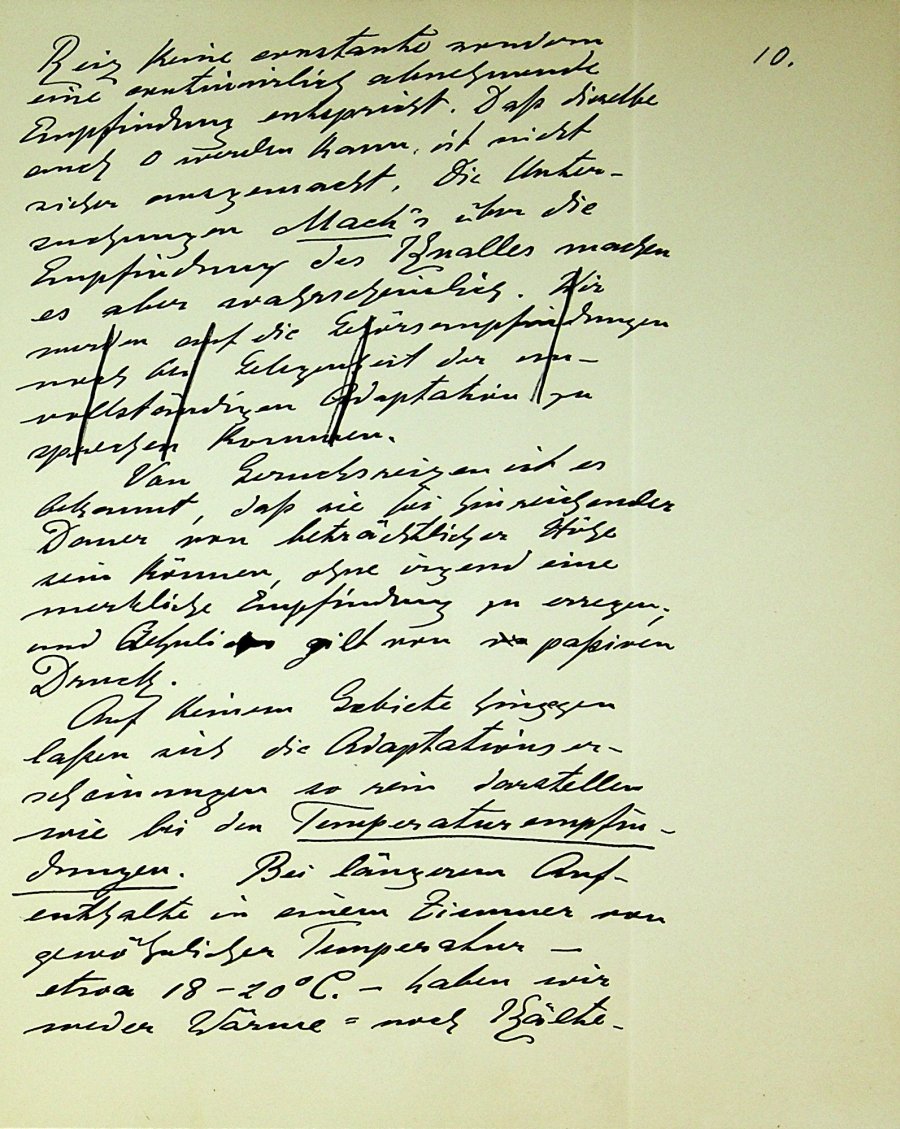 10.
Reiz keine constante sondern
eine continuirlich abnehmende
Empfindung entspricht. Daß dieselbe
auch 0 werden kann, ist nicht
sicher ausgemacht. Die Unter-
suchungen Mach's über die
Empfindung des Knalles machen
es aber wahrscheinlich. Wir
werden auf die Gehörsempfindungen
noch bei Gelegenheit der un-
vollständigen Adaptation zu
sprechen kommen.
Von Geruchsreizen ist es
bekannt, daß sie bei hinreichender
Dauer von beträchtlicher Höhe
sein können, ohne irgend eine
merkliche Empfindung zu erregen,
und Ähnli gilt von paßiven
Druck.
Auf keinem Gebiete hingegen
laßen sich die Adaptationser-
scheinungen so rein darstellen
wie bei den Temperaturempfin-
dungen. Bei längerem Auf-
enthalte in einem Zimmer von
gewöhnlicher Temperatur —
etwa 18-20°C. - haben wir
weder Wärme= noch Kälte-